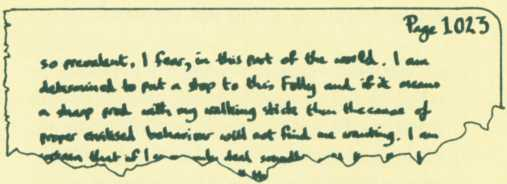 Page 1023
so prevalent, I fear, in this part of the world. I am
determined to put a stop to this folly and if it means
a sharp prod with my walking stick then the cause of
proper civilised behaviour will not find me wanting. I am
certain that if I can only deal